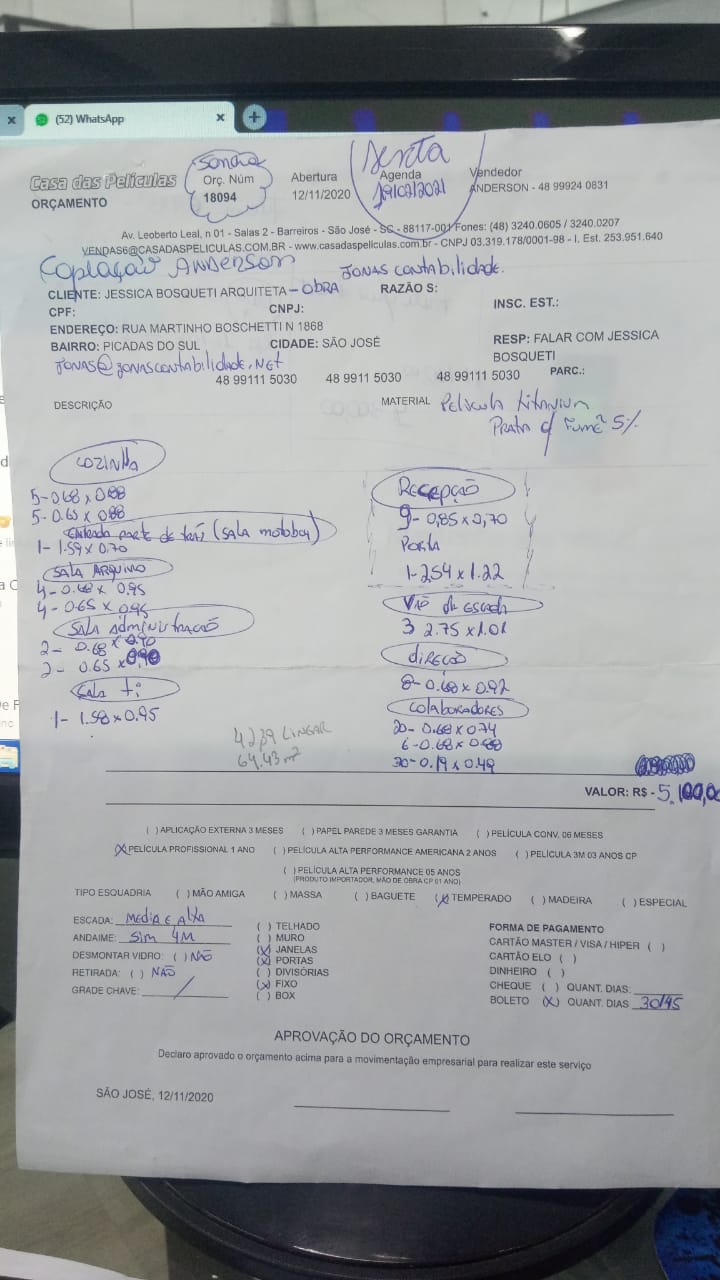 (52) WhatsApp
Casa das Películas
ORÇAMENTO
Orç. Núm
18094
Abertura
12/11/2020
Sexta
Agenda
19/02/2021
Vendedor
ANDERSON - 48 99924 0831
Av. Leoberto Leal, n 01 - Salas 2 - Barreiros - São José - SC - 88117-001 Fones: (48) 3240.0605 / 3240.0207
VENDAS6@CASADASPELICULAS.COM.BR - www.casadaspeliculas.com.br - CNPJ 03.319.178/0001-98 - I. Est. 253.951.640
Anderson Jonas contabilidade.
CLIENTE: JESSICA BOSQUETI ARQUITETA - OBRA RAZÃO S:
CPF: CNPJ: INSC. EST.:
ENDEREÇO: RUA MARTINHO BOSCHETTI N 1868
BAIRRO: PICADAS DO SUL CIDADE: SÃO JOSÉ
RESP: FALAR COM JESSICA
BOSQUETI
Jonas@jonascontabilidade.net
48 99111 5030 48 9911 5030 48 99111 5030 PARC.:
DESCRIÇÃO
MATERIAL Pelicula titanium
Prata c/ Fumê 5%
COZINHA
5 - 0.68 x 0.88
5 - 0.65 x 0.88
Entrada parte de traz (sala motoboy)
1 - 1.59 x 0.70
SALA ARQUIVO
4 - 0.68 x 0.95
4 - 0.65 x 0.95
SALA Administração
2 - 0.68 x 0.90
2 - 0.65 x 0.90
Sala t.i
1 - 1.58 x 0.95
Recepção
9 - 0,85 x 0,70
Porta
1 - 2.54 x 1.22
Vão da escada
3 2.75 x 1.01
direção
8 - 0.68 x 0.92
Colaboradores
20 - 0.68 x 0.74
6 - 0.68 x 0.88
30 - 0.19 x 0.49
42,39 Linear
64,43 m²
VALOR: R$ - 5.100,00
( ) APLICAÇÃO EXTERNA 3 MESES ( ) PAPEL PAREDE 3 MESES GARANTIA ( ) PELÍCULA CONV. 06 MESES
(X) PELÍCULA PROFISSIONAL 1 ANO ( ) PELÍCULA ALTA PERFORMANCE AMERICANA 2 ANOS ( ) PELÍCULA 3M 03 ANOS CP
( ) PELÍCULA ALTA PERFORMANCE 05 ANOS
(PRODUTO IMPORTADOR, MÃO DE OBRA CP 01 ANO)
TIPO ESQUADRIA ( ) MÃO AMIGA ( ) MASSA ( ) BAGUETE (X) TEMPERADO ( ) MADEIRA ( ) ESPECIAL
ESCADA: Media e Alta
ANDAIME: Sim 4M
DESMONTAR VIDRO: ( ) Não
RETIRADA: ( ) Não
GRADE CHAVE: /
( ) TELHADO
( ) MURO
(X) JANELAS
(X) PORTAS
( ) DIVISÓRIAS
(X) FIXO
( ) BOX
FORMA DE PAGAMENTO
CARTÃO MASTER / VISA / HIPER ( )
CARTÃO ELO ( )
DINHEIRO ( )
CHEQUE ( ) QUANT. DIAS:
BOLETO (X) QUANT. DIAS 30/45
APROVAÇÃO DO ORÇAMENTO
Declaro aprovado o orçamento acima para a movimentação empresarial para realizar este serviço
SÃO JOSÉ, 12/11/2020